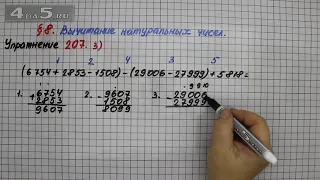 4apa5.RU
§8. Вычитание натуральных чисел.
Упражнение 207. 3)
1 2 4 3 5
(6754+2853-1508)-(29006-27999)+5818=
1. +6754 2. -9607 3. -29006
2853 1508 27999
9607 8099